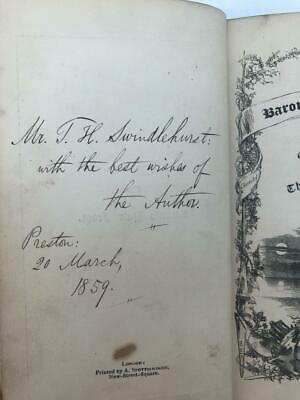 Mr. T. H. Swindlehurst:
with the best wishes of
the Author.
Preston:
20 March,
1859.
London:
Printed by A. Spottiswoode,
New-Street-Square.
Baro
Th